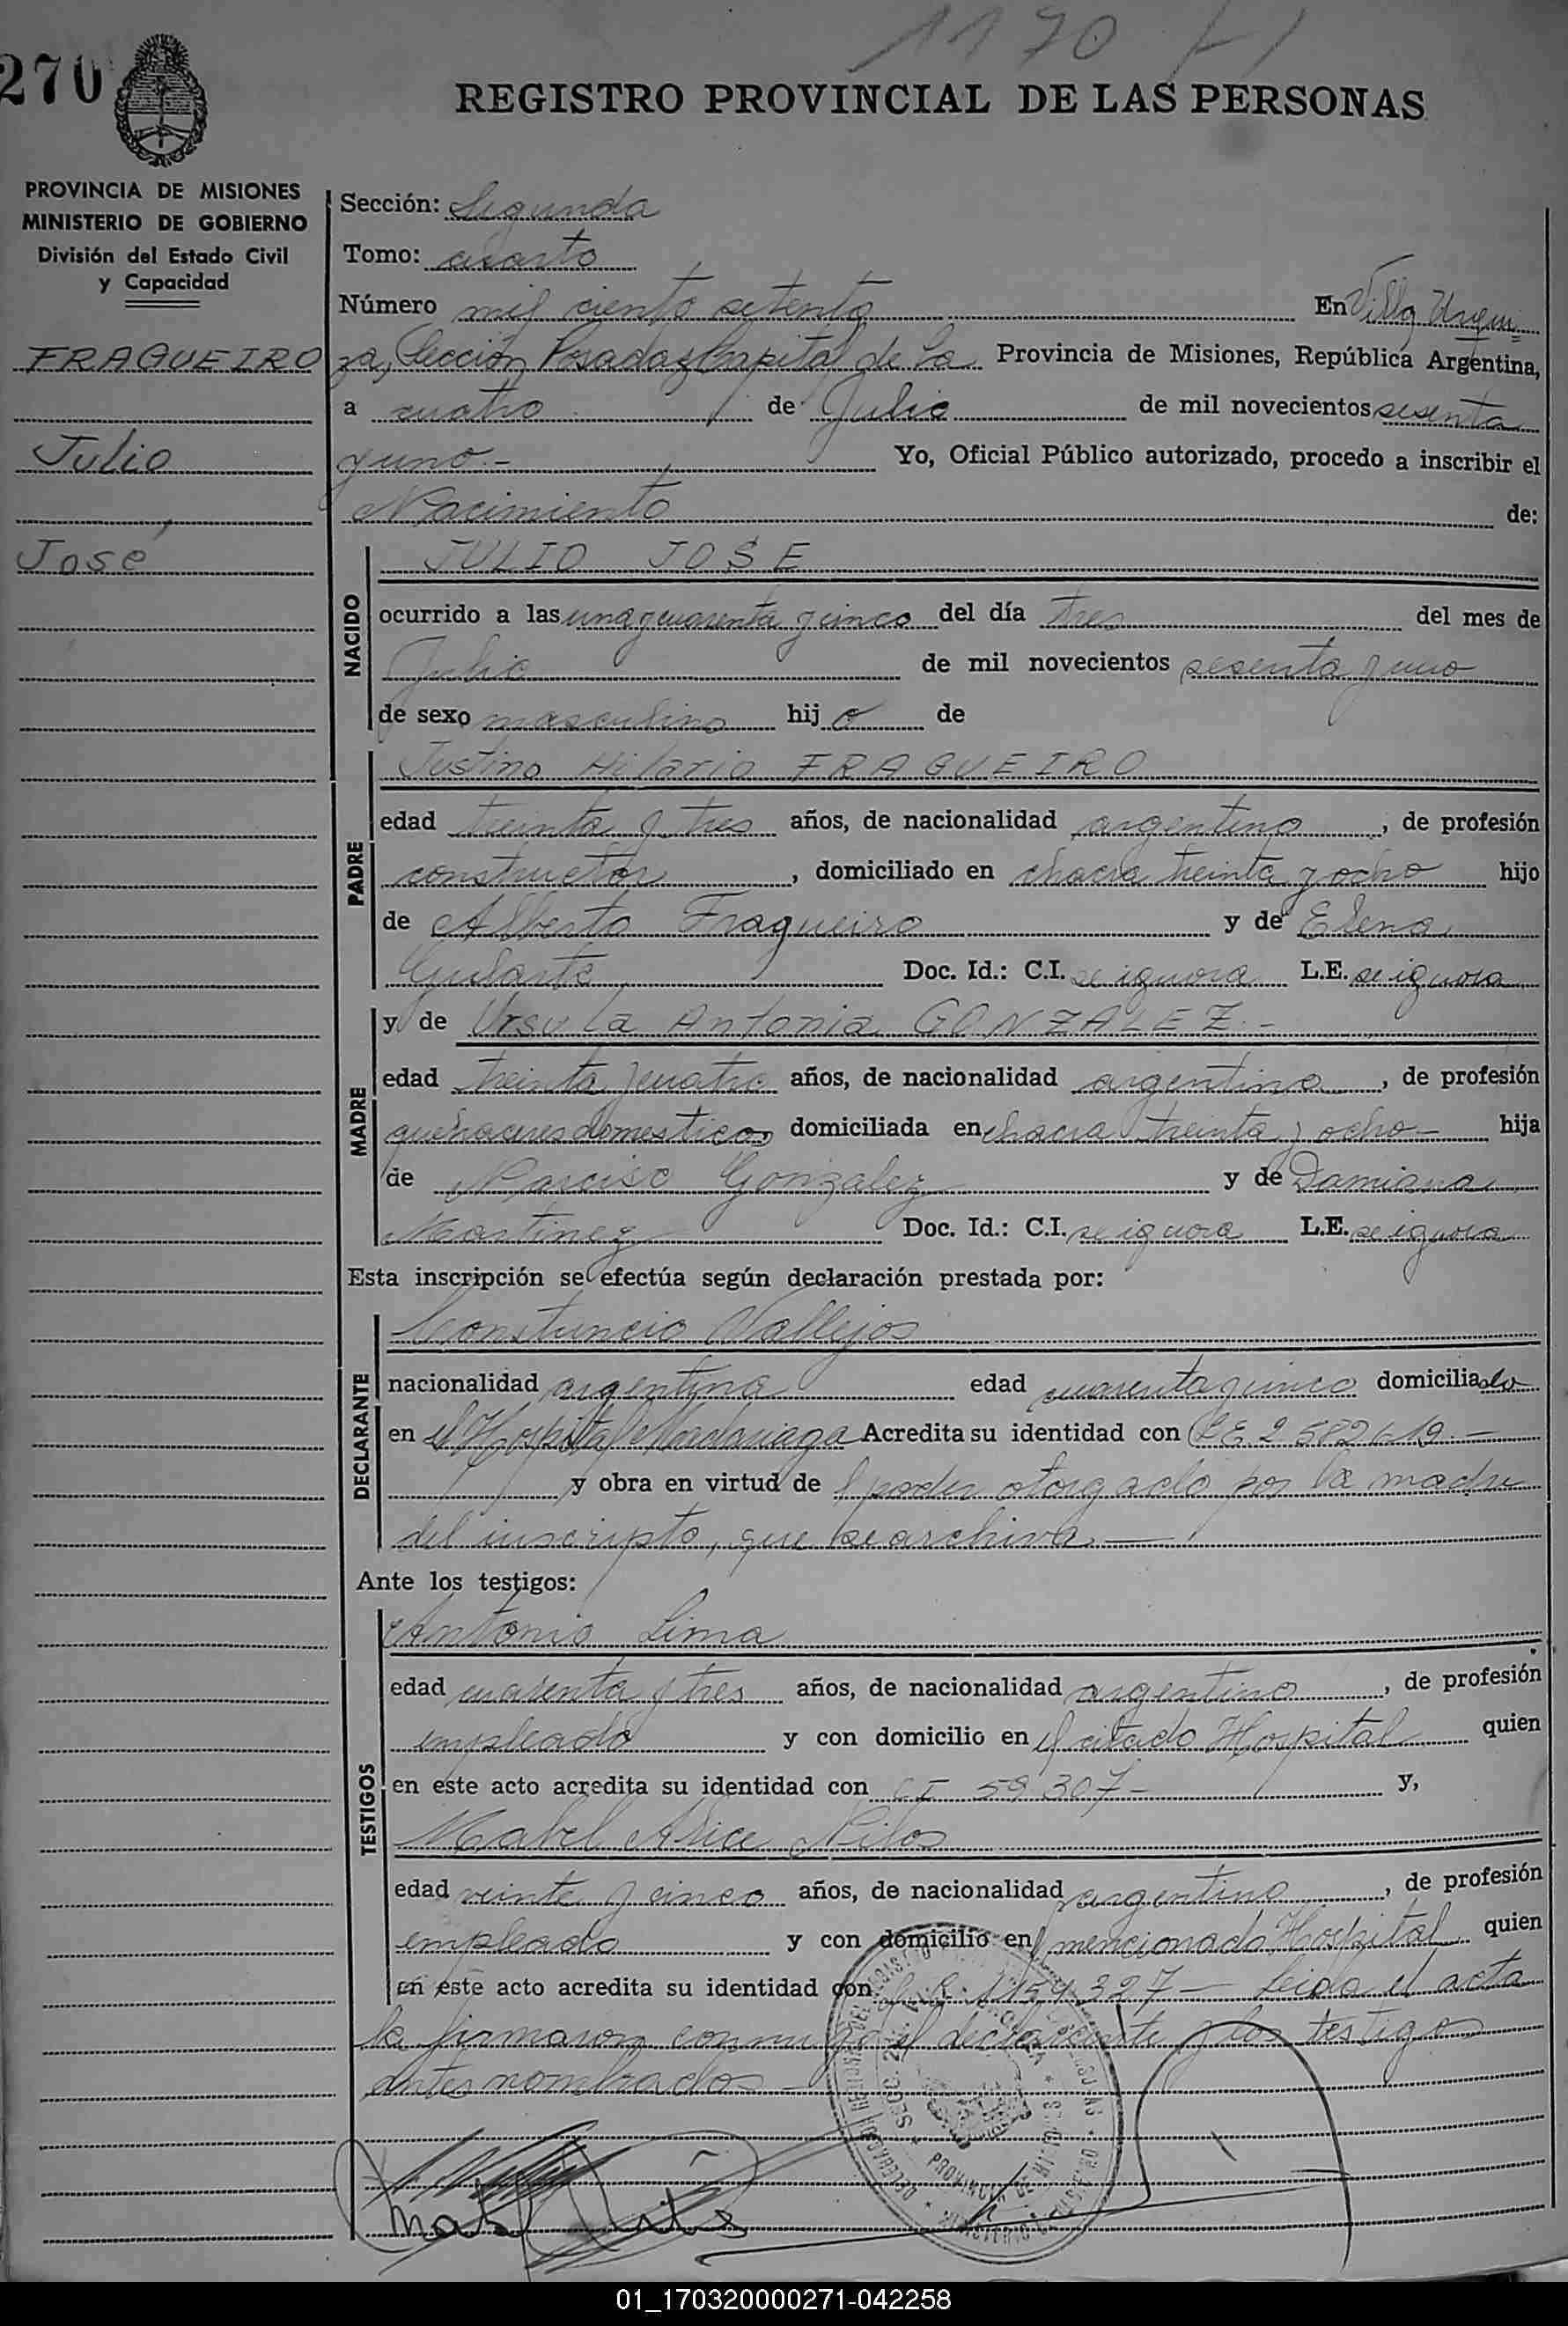 1170 
270
REGISTRO PROVINCIAL DE LAS PERSONAS
PROVINCIA DE MISIONES
MINISTERIO DE GOBIERNO
División del Estado Civil
y Capacidad
FRAGUEIRO
Julio
José
Sección: Segunda
Tomo: cuarto
Número mil ciento setenta En Villa Urqui
za, Sección Posadas Capital de la Provincia de Misiones, República Argentina,
a cuatro de Julio de mil novecientos sesenta
y uno.- Yo, Oficial Público autorizado, procedo a inscribir el
Nacimiento de:
NACIDO
JULIO JOSE
ocurrido a las una y cuarenta y cinco del día tres del mes de
Julio de mil novecientos sesenta y uno
de sexo masculino hijo de
PADRE
Justino Hilario FRAGUEIRO
edad treinta y tres años, de nacionalidad argentino, de profesión
constructor, domiciliado en chacra treinta y ocho hijo
de Alberto Fragueiro y de Elena
Doc. Id.: C.I. se ignora L.E. se ignora
MADRE
y de Ursula Antonia GONZALEZ.-
edad treinta y cuatro años, de nacionalidad argentina, de profesión
quehaceres domesticos, domiciliada en chacra treinta y ocho- hija
de Narciso Gonzalez y de Damiana
Martinez Doc. Id.: C.I. se ignora L.E. se ignora
Esta inscripción se efectúa según declaración prestada por:
DECLARANTE
Constancio Vallejos
nacionalidad argentina edad cuarenta y cinco domiciliado
en el Hospital Madariaga Acredita su identidad con LE 2.582.619.-
y obra en virtud de l poder otorgado por la madre
del inscripto, que se archiva.-
Ante los testigos:
TESTIGOS
Antonio Lima
edad cuarenta y tres años, de nacionalidad argentino, de profesión
empleado y con domicilio en el citado Hospital quien
en este acto acredita su identidad con CI 59.307- y,
Mabel Alice
edad veinte y cinco años, de nacionalidad argentina, de profesión
empleada y con domicilio en el mencionado Hospital quien
en este acto acredita su identidad con 327- Leida el acta
la firmaron conmigo el declarante y los testigos
antes nombrados-
Mabel
01_170320000271-042258